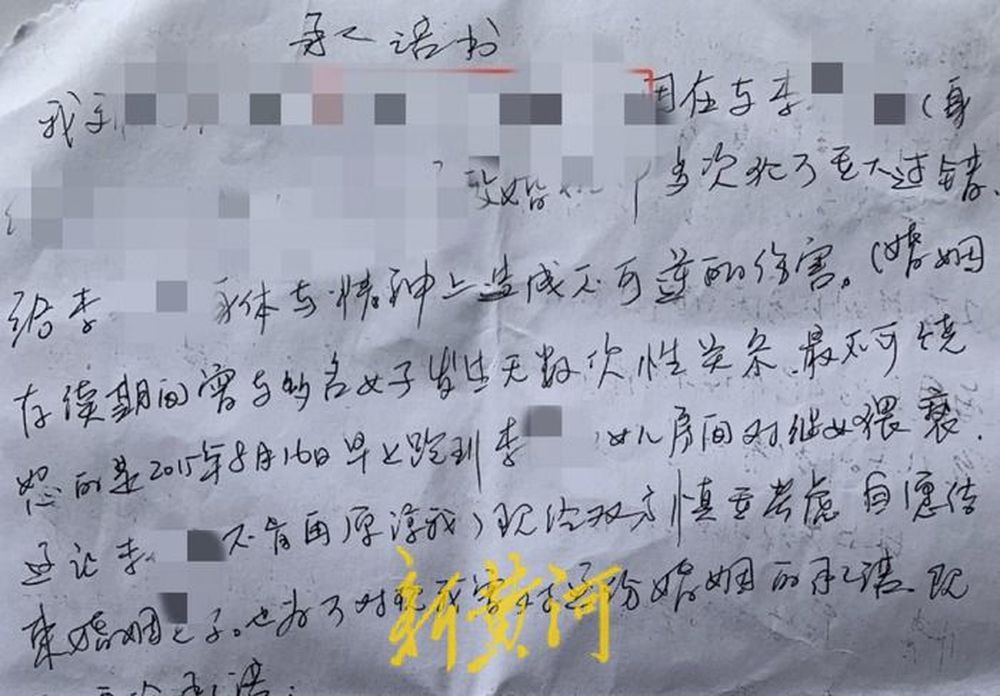 承诺书
我 因在与李 （身
致婚 多次犯了重大过错、
给李 身体与精神上造成不可逆的伤害。（婚姻
存续期间曾与多名女子发生无数次性关系、最不可饶
恕的是2015年8月16日早上跑到李 女儿房间对继女猥亵、
这让李 不肯再原谅我）现经双方慎重考虑自愿结
束婚姻 。也为了对 婚姻的承诺、现
新黄河
承诺：